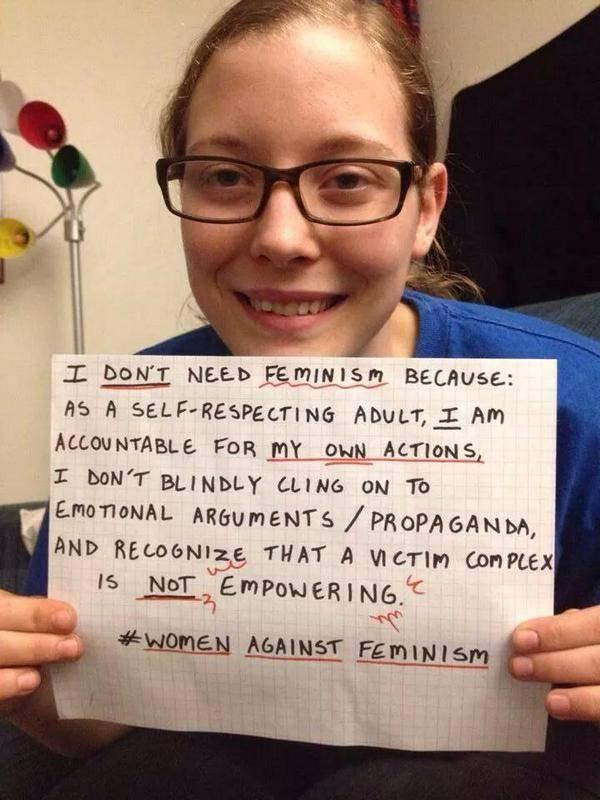 I DON'T NEED FEMINISM BECAUSE:
AS A SELF-RESPECTING ADULT, I AM
ACCOUNTABLE FOR MY OWN ACTIONS,
I DON'T BLINDLY CLING ON TO
EMOTIONAL ARGUMENTS / PROPAGANDA,
AND RECOGNIZE THAT A VICTIM COMPLEX
IS NOT EMPOWERING.
#WOMEN AGAINST FEMINISM